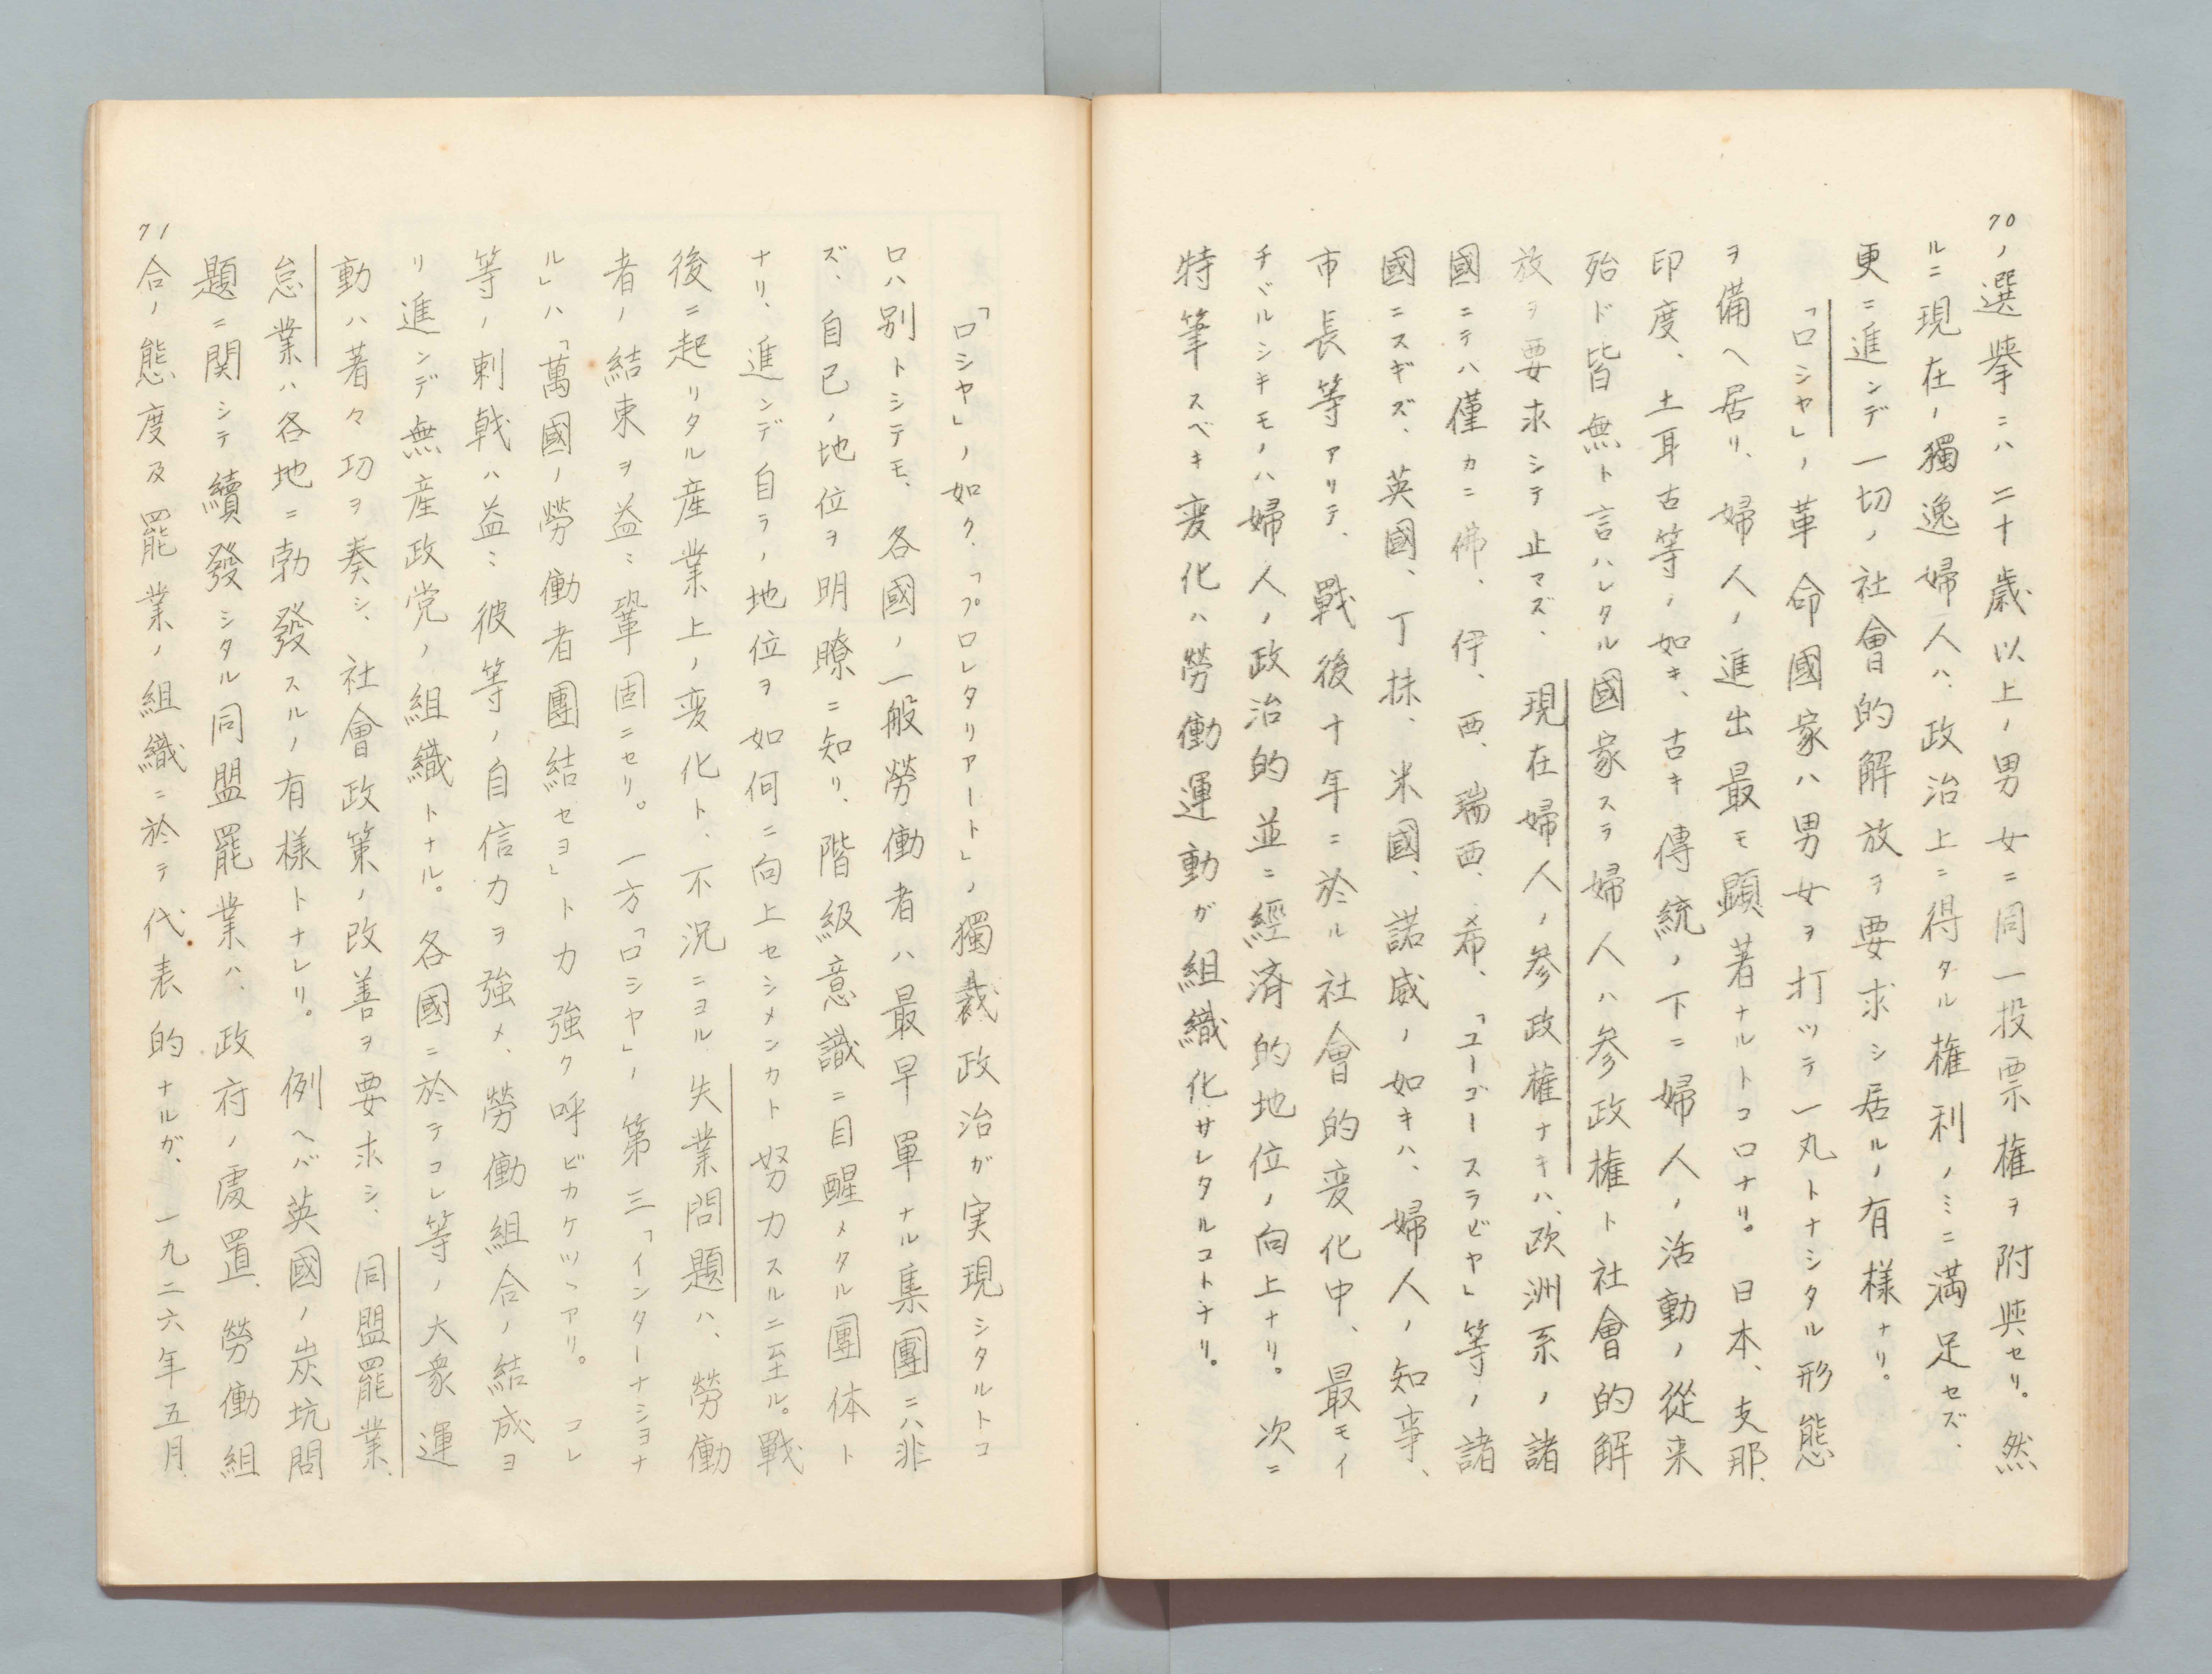 70
ノ選挙ニハ二十歳以上ノ男女ニ同一投票権ヲ附與セリ。然
ルニ現在ノ獨逸婦人ハ、政治上ニ得タル権利ノミニ満足セズ、
更ニ進ンデ一切ノ社會的解放ヲ要求シ居ルノ有様ナリ。
「ロシヤ」ノ革命國家ハ男女ヲ打ツテ一丸トナシタル形態
ヲ備ヘ居リ、婦人ノ進出最モ顕著ナルトコロナリ。日本、支那、
印度、土耳古等ノ如キ、古キ傳統ノ下ニ婦人ノ活動ノ從来
殆ド皆無ト言ハレタル國家スラ婦人ハ参政権ト社會的解
放ヲ要求シテ止マズ、現在婦人ノ参政権ナキハ、欧洲系ノ諸
國ニテハ僅カニ佛、伊、西、瑞西、希、「ユーゴースラビヤ」等ノ諸
國ニスギズ、英國、丁抹、米國、諾威ノ如キハ、婦人ノ知事、
市長等アリテ、戰後十年ニ於ル社會的変化中、最モイ
チヾルシキモノハ婦人ノ政治的並ニ經済的地位ノ向上ナリ。次ニ
特筆スベキ変化ハ勞働運動ガ組織化サレタルコトナリ。
「ロシヤ」ノ如ク、「プロレタリアート」ノ獨裁政治ガ実現シタルトコ
ロハ別トシテモ、各國ノ一般勞働者ハ最早單ナル集團ニハ非
ズ、自己ノ地位ヲ明瞭ニ知リ、階級意識ニ目醒メタル團体ト
ナリ、進ンデ自ラノ地位ヲ如何ニ向上セシメンカト努力スルニ至ル。戰
後ニ起リタル産業上ノ変化ト、不況ニヨル失業問題ハ、勞働
者ノ結束ヲ益ミ鞏固ニセリ。一方「ロシヤ」ノ第三「インターナシヨナ
ル」ハ「萬國ノ勞働者團結セヨ」ト力強ク呼ビカケツヽアリ。コレ
等ノ刺戟ハ益ミ彼等ノ自信力ヲ強メ、勞働組合ノ結成ヨ
リ進ンデ無産政党ノ組織トナル。各國ニ於テコレ等ノ大衆運
動ハ著々功ヲ奏シ、社會政策ノ改善ヲ要求シ、同盟罷業、
怠業ハ各地ニ勃發スルノ有様トナレリ。例ヘバ英國ノ炭坑問
題ニ関シテ續發シタル同盟罷業ハ、政府ノ處置、勞働組
71
合ノ態度及罷業ノ組織ニ於テ代表的ナルガ、一九二六年五月、